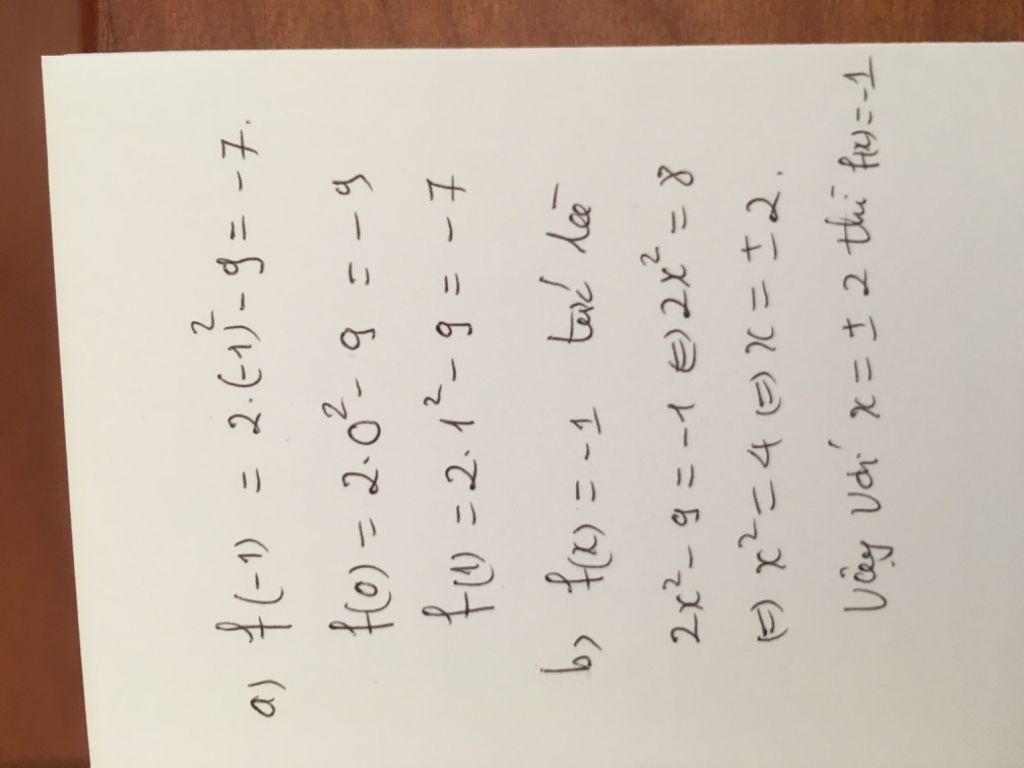 a) f(-1) = 2.(-1)² - 9 = -7.
f(0) = 2.0² - 9 = -9
f(1) = 2.1² - 9 = -7
b) f(x) = -1 tức là
2x² - 9 = -1 ⇔ 2x² = 8
⇔ x² = 4 ⇔ x = ± 2.
Vậy với x = ± 2 thì f(x) = -1